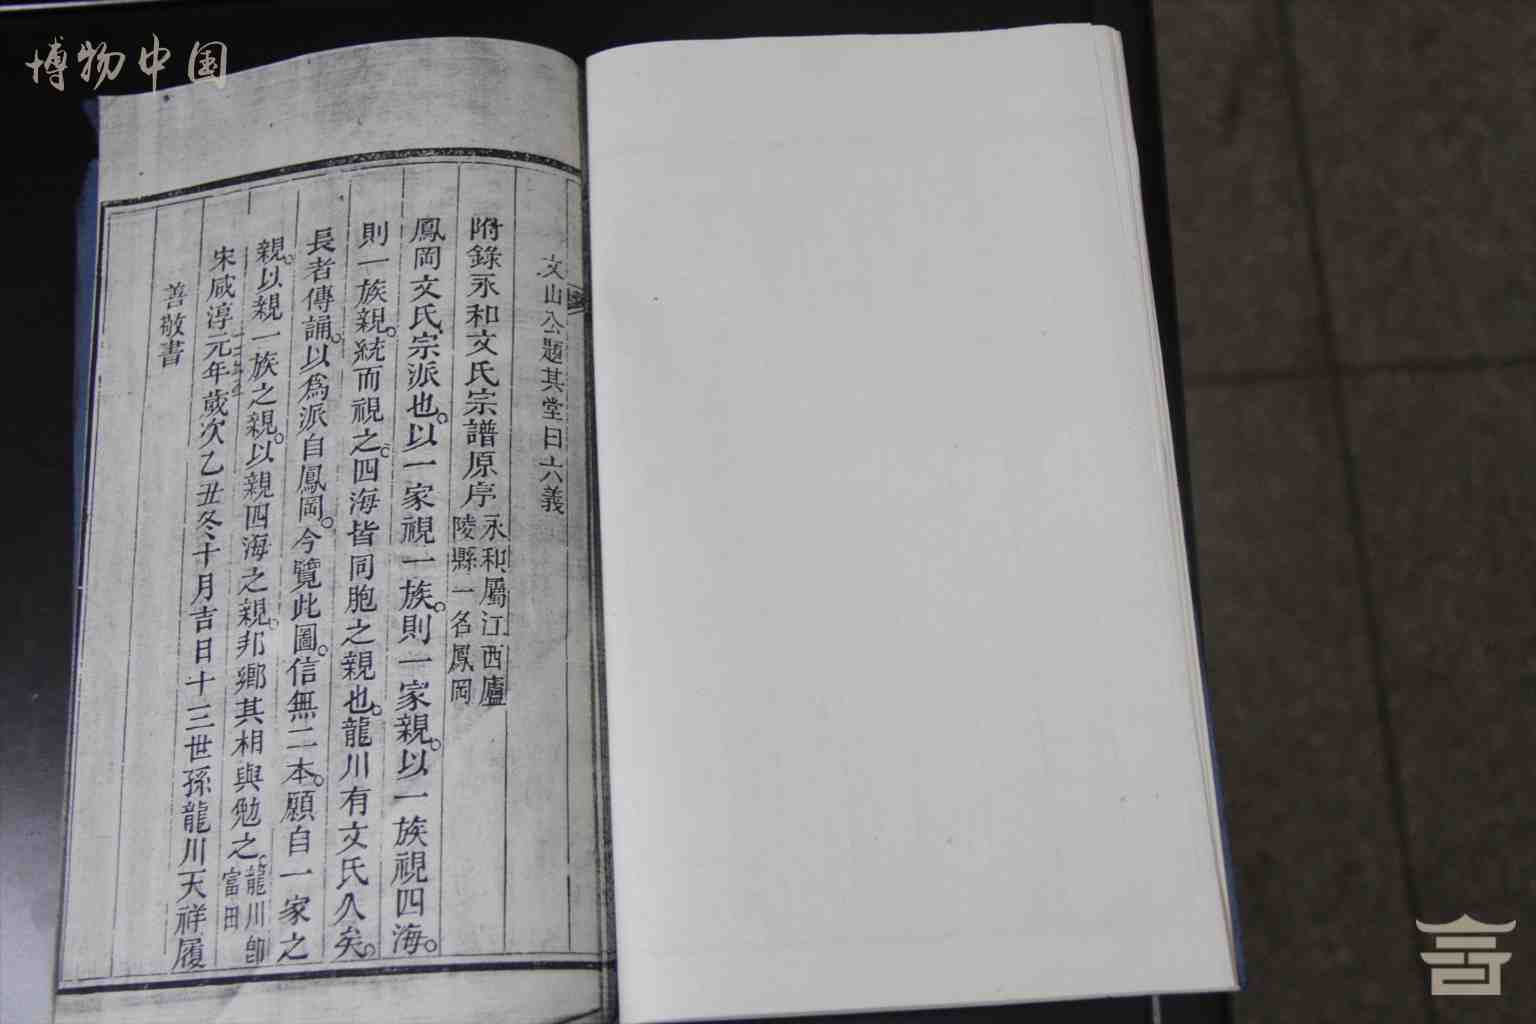 博物中国
文山公題其堂曰六義
附錄永和文氏宗譜原序
永和屬江西廬
陵縣一名鳳岡
鳳岡文氏宗派也。以一家視一族。則一家親。以一族視四海。
則一族親。統而視之。四海皆同胞之親也。龍川有文氏久矣。
長者傳誦。以為派自鳳岡。今覽此圖。信無二本。願自一家之
親。以親一族之親。以親四海之親。邦鄉其相與勉之。
龍川卽
富田
宋咸淳元年歲次乙丑冬十月吉日十三世孫龍川天祥履
善敬書